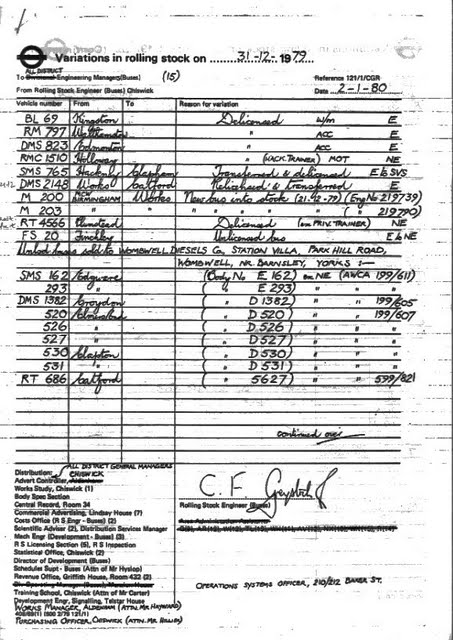 Variations in rolling stock on 31-12-1979
ALL DISTRICT
To Engineering Managers (Buses) (15)
Reference 121/1/CGR
From Rolling Stock Engineer (Buses) Chiswick
Date 2-1-80
Vehicle number From To Reason for variation
BL 69 Kingston Delicensed w/m E
RM 797 Walthamstow " ACC E
DMS 823 Edmonton " ACC E
RMC 1510 Holloway " (HACK. TRAINER) MOT NE
SMS 765 Hackney Clapham Transferred & delicensed E to SVS
DMS 2148 Works Catford Relicensed & transferred E
M 200 NEW BIRMINGHAM Works New bus into stock (21-12-79) (Eng No 219739)
M 203 " " " " " " ( " 219790)
RT 4566 Plumstead Delicensed (on PRIV. TRAINER) NE
FS 20 Finchley Unlicensed bus E to NE
Unlicd buses sold to WOMBWELL DIESELS Co, STATION VILLA, PARK HILL ROAD,
WOMBWELL, NR. BARNSLEY, YORKS :—
SMS 162 Edgware (Body No E 162) on NE (AWCA 199/611)
293 " ( " E 293) " "
DMS 1382 Croydon ( " D 1382) " 199/605
520 ( " D 520) " 199/607
526 " ( " D 526) " "
527 " ( " D 527) " "
530 Clapton ( " D 530) " "
531 " ( " D 531) " "
RT 686 Catford ( " 5627) " " 599/821
continued over
Distribution: ALL DISTRICT GENERAL MANAGERS
CHISWICK
Advert Controller,
Works Study, Chiswick (1)
Body Spec Section
Central Record, Room 34
Commercial Advertising, Lindsay House (7)
Costs Office (R S Engr - Buses) (2)
Scientific Adviser (2), Distribution Services Manager
Mech Engr (Development - Buses) (3)
RS Licensing Section (5), R S Inspection
Statistical Office, Chiswick (2)
Director of Development (Buses)
Schedules Supt - Buses (Attn of Mr Hyslop)
Revenue Office, Griffith House, Room 432 (2)
Training School, Chiswick (Attn of Mr Carter)
Development Engr, Signalling, Telstar House
WORKS MANAGER, ALDENHAM (ATTN. MR HAYWARD)
PURCHASING OFFICER, CHISWICK (ATTN. MR HOLLEY)
C. F.
Rolling Stock Engineer (Buses)
OPERATIONS SYSTEMS OFFICER, 210/212 BAKER ST.